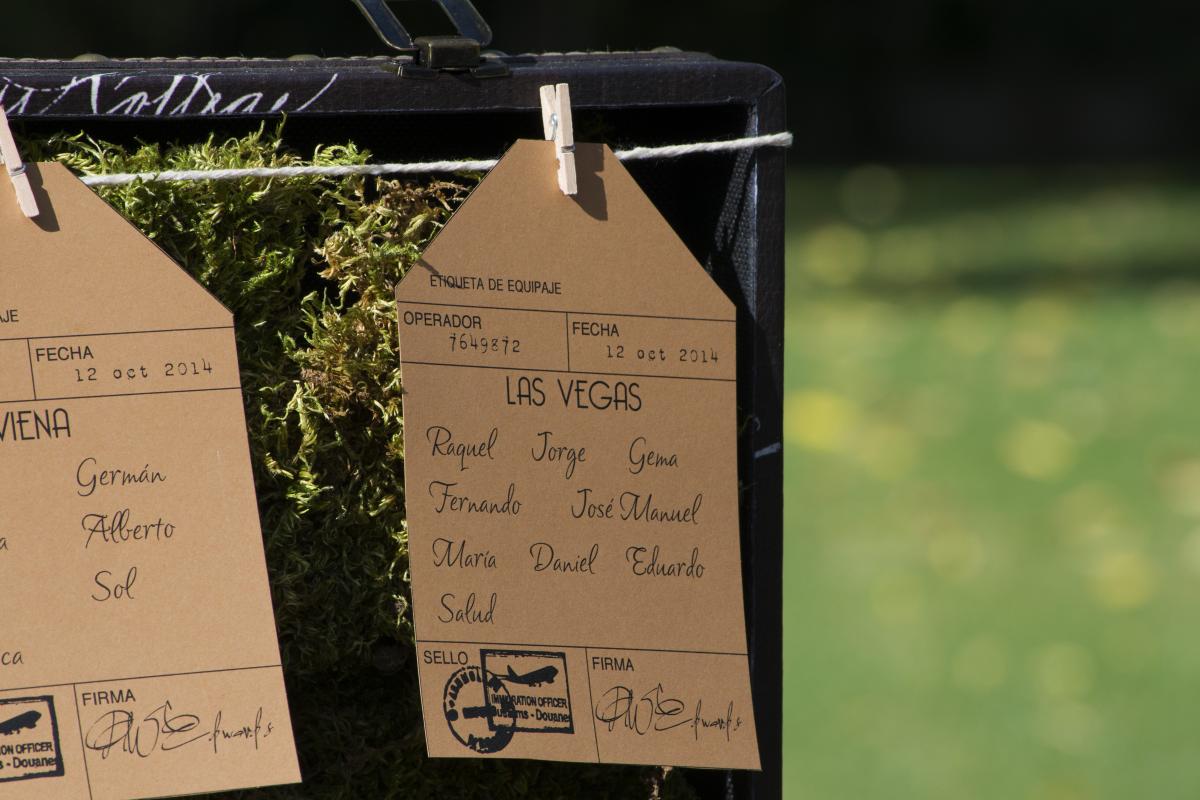 AJE
FECHA
12 oct 2014
VIENA
Germán
Alberto
Sol
ca
FIRMA
ETIQUETA DE EQUIPAJE
OPERADOR
7649872
FECHA
12 oct 2014
LAS VEGAS
Raquel Jorge Gema
Fernando José Manuel
María Daniel Eduardo
Salud
SELLO
IMMIGRATION OFFICER
Customs - Douanes
FIRMA